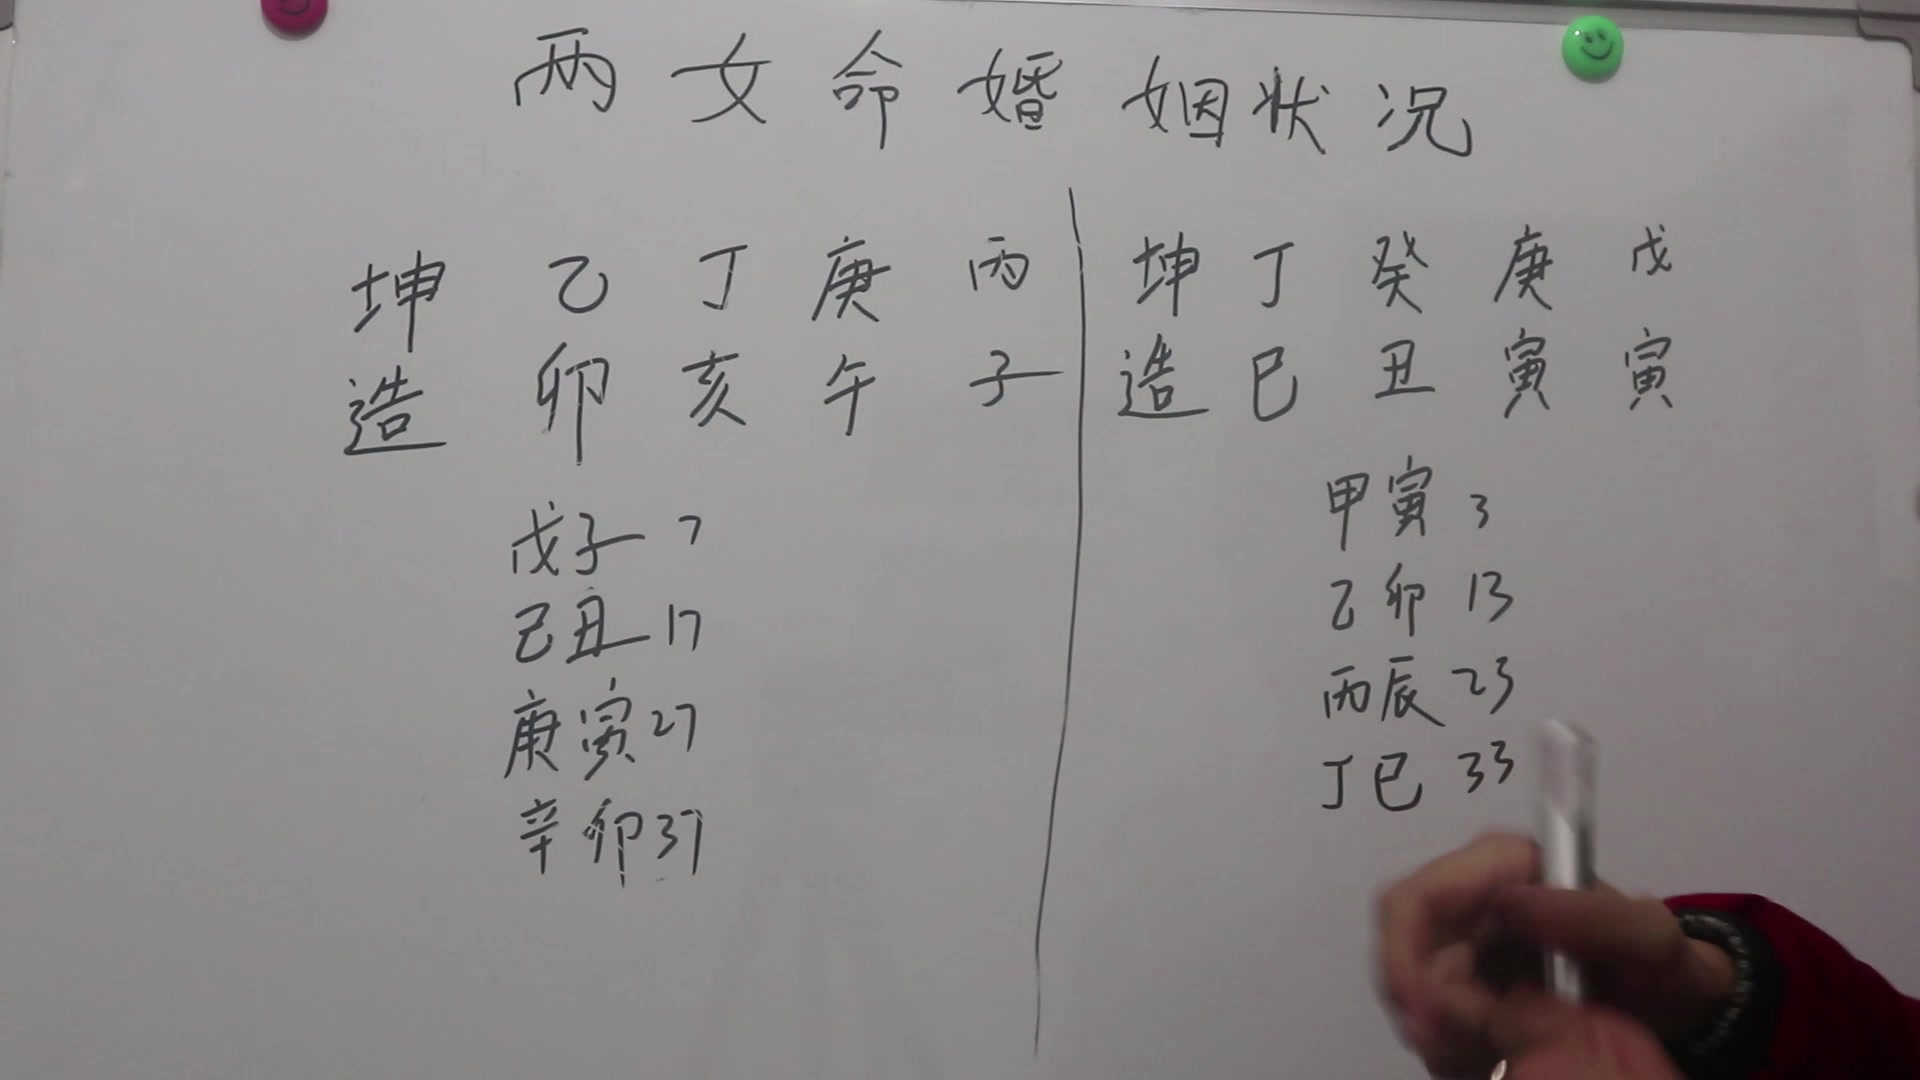 两女命婚姻状况
坤造 乙卯 丁亥 庚午 丙子
戊子 7
己丑 17
庚寅 27
辛卯 37
坤造 丁巳 癸丑 庚寅 戊寅
甲寅 3
乙卯 13
丙辰 23
丁巳 33